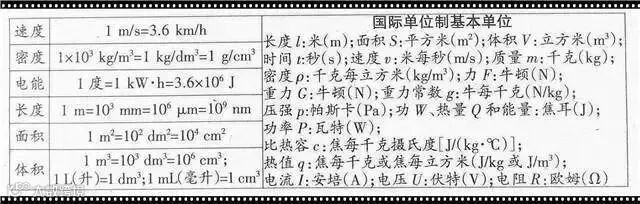 速度 1 m/s=3.6 km/h
密度 1×10³ kg/m³=1 kg/dm³=1 g/cm³
电能 1度=1 kW·h=3.6×10⁶ J
长度 1 m=10³ mm=10⁶ μm=10⁹ nm
面积 1 m²=10² dm²=10⁴ cm²
体积 1 m³=10³ dm³=10⁶ cm³;
1 L(升)=1 dm³;1 mL(毫升)=1 cm³
国际单位制基本单位
长度 l:米(m);面积 S:平方米(m²);体积 V:立方米(m³);
时间 t:秒(s);速度 v:米每秒(m/s);质量 m:千克(kg);
密度 ρ:千克每立方米(kg/m³);力 F:牛顿(N);
重力 G:牛顿(N);重力常数 g:牛每千克(N/kg);
压强 p:帕斯卡(Pa);功 W、热量 Q 和能量:焦耳(J);
功率 P:瓦特(W);
比热容 c:焦每千克摄氏度[J/(kg·℃)];
热值 q:焦每千克或焦每立方米(J/kg 或 J/m³);
电流 I:安培(A);电压 U:伏特(V);电阻 R:欧姆(Ω)